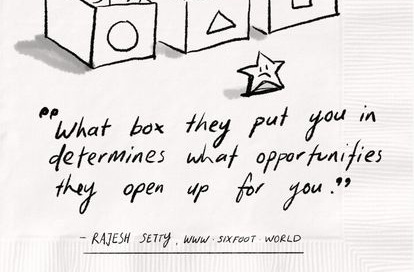 "What box they put you in
determines what opportunities
they open up for you."
- RAJESH SETTY, WWW.SIXFOOT.WORLD